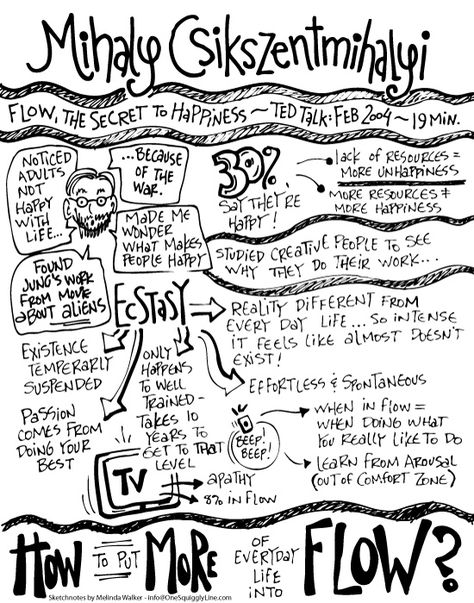 Mihaly Csikszentmihalyi
FLOW, THE SECRET TO HAPPINESS ~ TED TALK: FEB 2004 ~ 19 MIN.
NOTICED
ADULTS
NOT
HAPPY
WITH
LIFE...
...BECAUSE
OF THE
WAR.
MADE ME
WONDER
WHAT MAKES
PEOPLE HAPPY
FOUND
JUNG'S WORK
FROM MOVIE
ABOUT ALIENS
30%
SAY THEY'RE
HAPPY!
lack of RESOURCES =
MORE UNHAPPINESS
MORE RESOURCES ≠
MORE HAPPINESS
STUDIED CREATIVE PEOPLE TO SEE
WHY THEY DO THEIR WORK...
ECSTASY
REALITY DIFFERENT FROM
EVERY DAY LIFE... SO INTENSE
IT FEELS LIKE ALMOST DOESN'T
EXIST!
EXISTENCE
TEMPERARLY
SUSPENDED
PASSION
COMES FROM
DOING YOUR
BEST
ONLY
HAPPENS
TO WELL
TRAINED-
TAKES 10
YEARS TO
GET TO THAT
LEVEL
EFFORTLESS & SPONTANEOUS
BEEP!
BEEP!
WHEN IN FLOW =
WHEN DOING WHAT
YOU REALLY LIKE TO DO
LEARN FROM AROUSAL
(OUT OF COMFORT ZONE)
TV
APATHY
8% IN FLOW
HOW TO PUT MORE
OF
EVERYDAY
LIFE
INTO
FLOW?
Sketchnotes by Melinda Walker - info@OneSquigglyLine.com